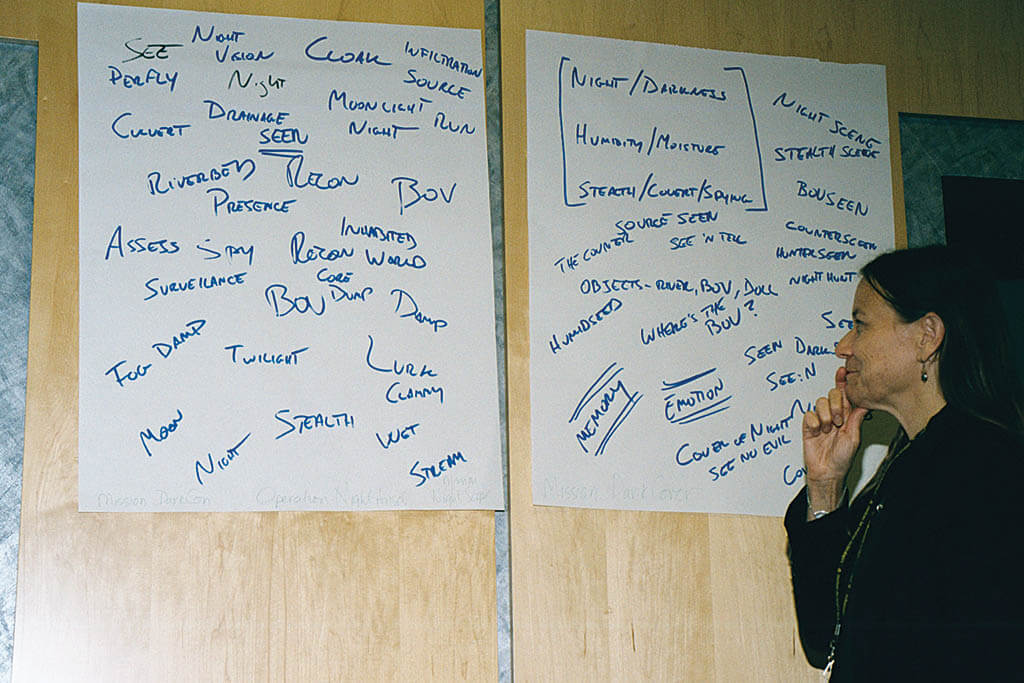 SEE
NIGHT VISION
CLOAK
INFILTRATION
PERFLY
NIGHT
SOURCE
DRAINAGE
MOONLIGHT RUN
CULVERT
SEEN
NIGHT
RIVERBED
RECON
PRESENCE
BOV
ASSESS
SPY
INHABITED
RECON WORLD
SURVEILANCE
CORE
BOV
DUMP
DAMP
FOG DAMP
TWILIGHT
LURK
CLAMMY
MOON
STEALTH
NIGHT
WET
STREAM
Mission DareCon
NIGHT/DARKNESS
HUMIDITY/MOISTURE
STEALTH/COVERT/SPYING
NIGHT SCENE
STEALTH SCENE
BOVSEEN
SOURCE SEEN
THE COUNTER
SEE 'N TELL
COUNTERSEEN
HUNTERSEEN
NIGHT HUNT
OBJECTS - RIVER, BOV, DOLL
HUMIDSEED
WHERE'S THE BOV?
SEE
SEEN DARK
SEE:N
MEMORY
EMOTION
COVER OF NIGHT
SEE NO EVIL
Mission DarkCover